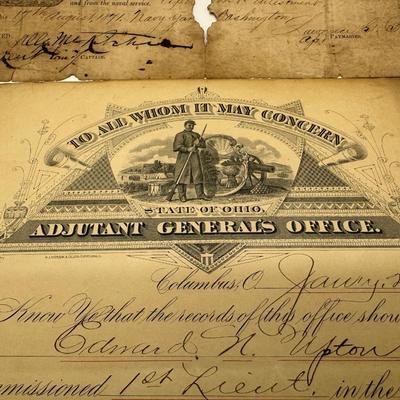 and from the naval service.
August, 1891, Navy Yard Washington
CAPTAIN.
PAYMASTER.
TO ALL WHOM IT MAY CONCERN
STATE OF OHIO,
ADJUTANT GENERAL'S OFFICE.
Columbus, O.
Know Ye that the records of this office show
Edward N. Upton
mmissioned 1st Lieut. in the